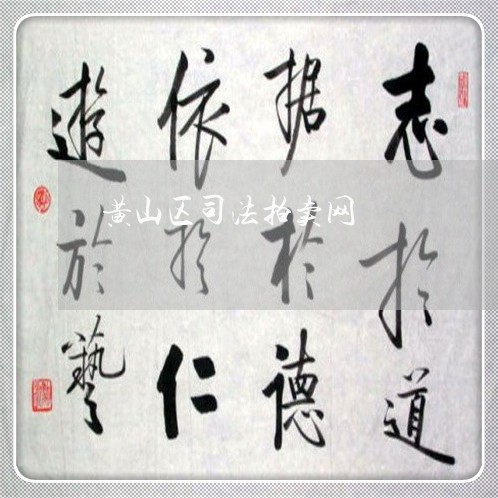 志於道
据於德
依於仁
遊於藝
黄山区司法拍卖网